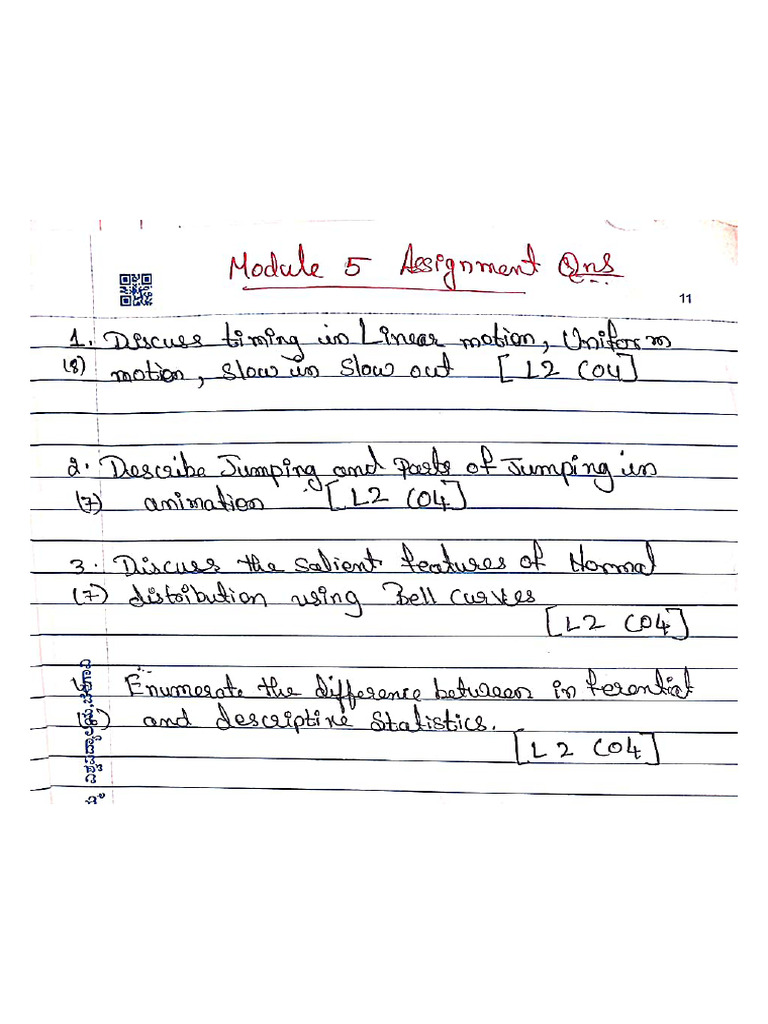 Module 5 Assignment Qns
11
1. Discuss timing in Linear motion, Uniform
(8) motion, slow in slow out [L2 CO4]
2. Describe Jumping and Parts of Jumping in
(7) animation [L2 CO4]
3. Discuss the salient features of Normal
(7) distribution using Bell curves
[L2 CO4]
Enumerate the difference between inferential
and descriptive statistics.
[L2 CO4]